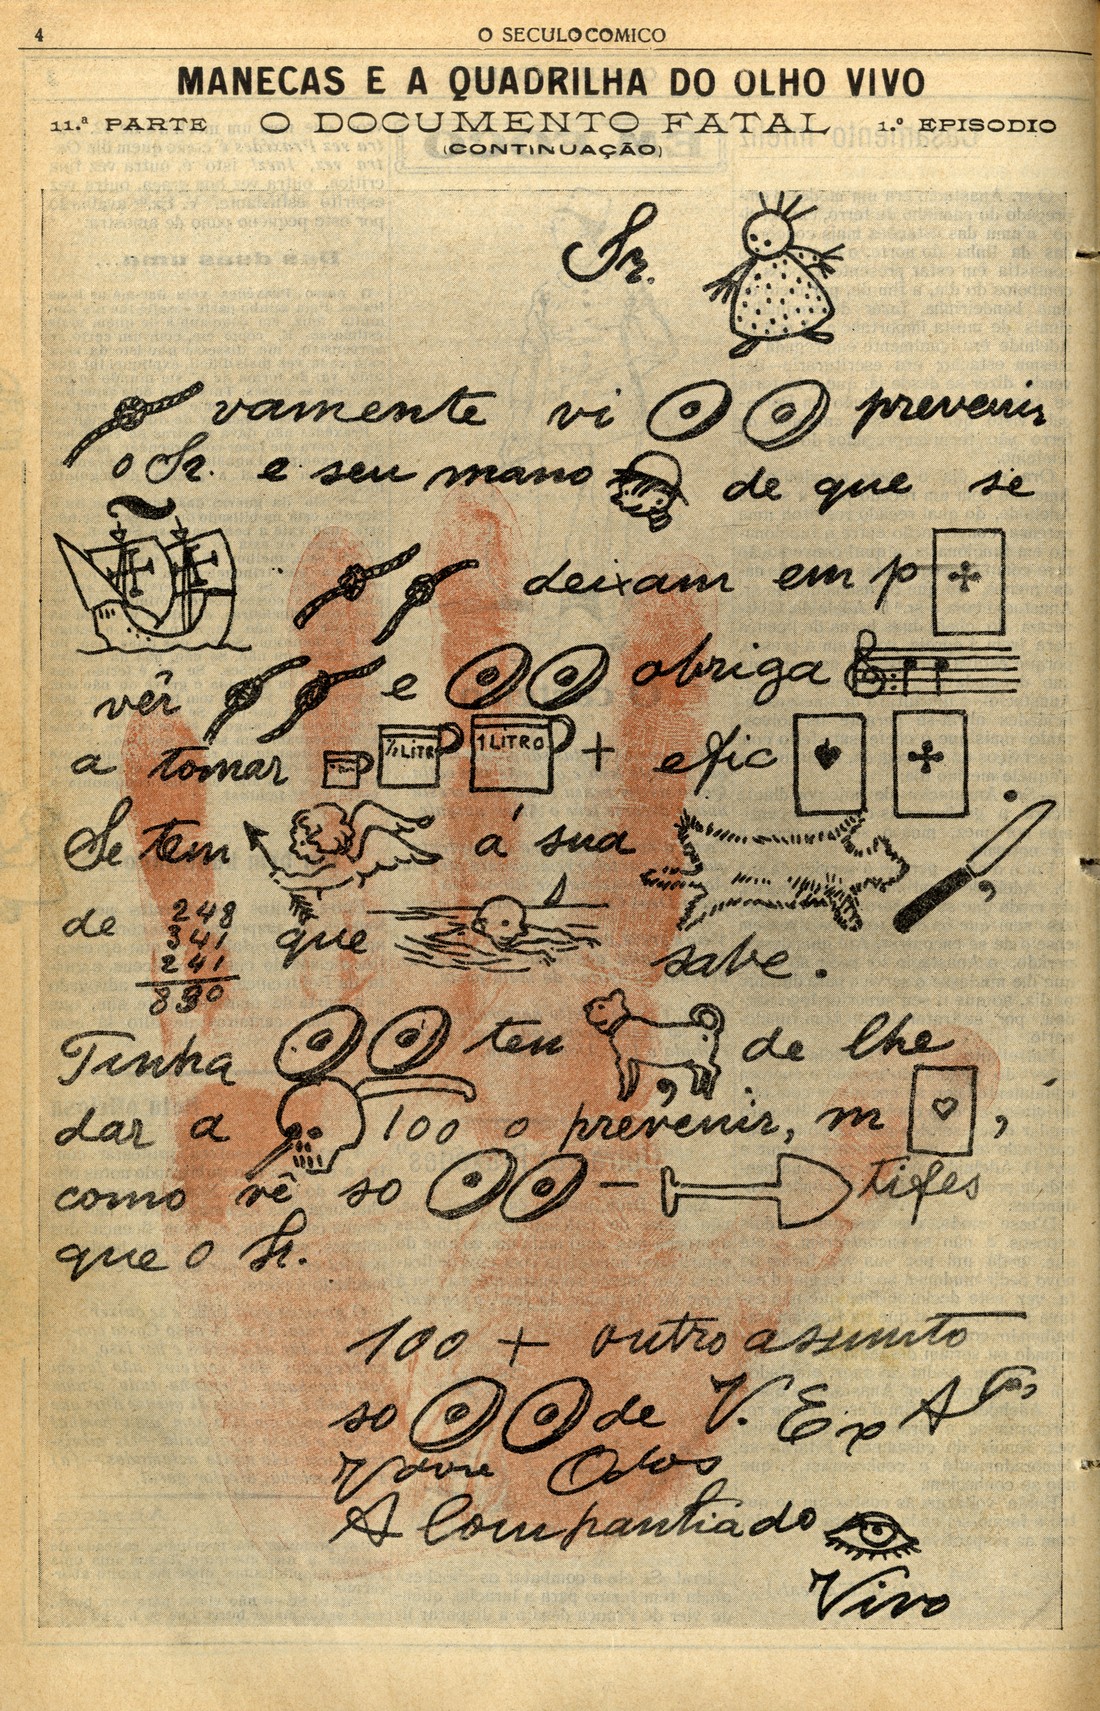 4
O SECULO COMICO
MANECAS E A QUADRILHA DO OLHO VIVO
11.ª PARTE O DOCUMENTO FATAL 1.º EPISODIO
(CONTINUAÇÃO)
Sr.
vamente vi prevenir
o Sr. e seu mano de que se
deixam em p
vêr e obriga
a tomar ½ LITRO 1 LITRO + efic
Se tem á sua ,
de 248 que sabe.
341
241
830
Tinha ten de lhe
dar a 100 o prevenir, m ,
como vê so − tifes
que o Sr.
100 + outro assunto
so de V. Ex
A Companhia do
Vivo